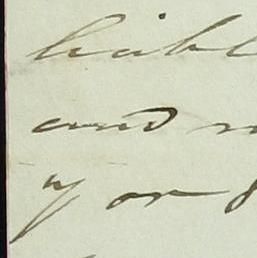 liabl
and
y or